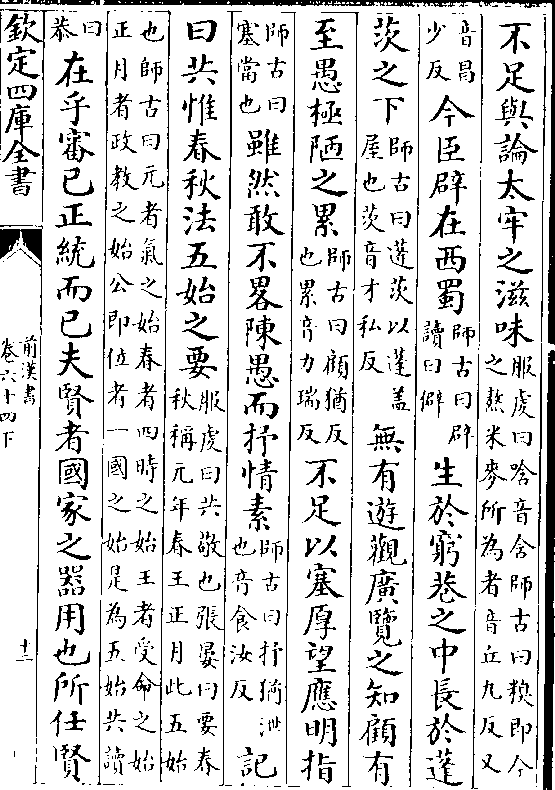 不足與論太牢之滋味服虔曰唅音含師古曰糗即今之熬米麥所為者音丘九反又
音昌少反今臣辟在西蜀師古曰辟讀曰僻生於窮巷之中長於蓬
茨之下師古曰蓬茨以蓬蓋屋也茨音才私反無有遊觀廣覽之知顧有
至愚極陋之累師古曰顧猶反也累音力瑞反不足以塞厚望應明指
師古曰塞當也雖然敢不畧陳愚而抒情素師古曰抒猶泄也音食汝反記
曰共惟春秋法五始之要服虔曰共敬也張晏曰要春秋稱元年春王正月此五始
也師古曰元者氣之始春者四時之始王者受命之始正月者政教之始公即位者一國之始是為五始共讀
曰恭在乎審己正統而已夫賢者國家之器用也所任賢
欽定四庫全書
前漢書
卷六十四下
十二